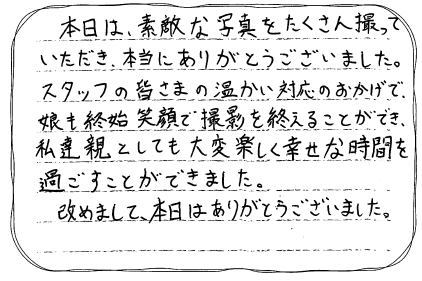 本日は、素敵な写真をたくさん撮って
いただき、本当にありがとうございました。
スタッフの皆さまの温かい対応のおかげで、
娘も終始笑顔で撮影を終えることができ、
私達親としても大変楽しく幸せな時間を
過ごすことができました。
改めまして、本日はありがとうございました。